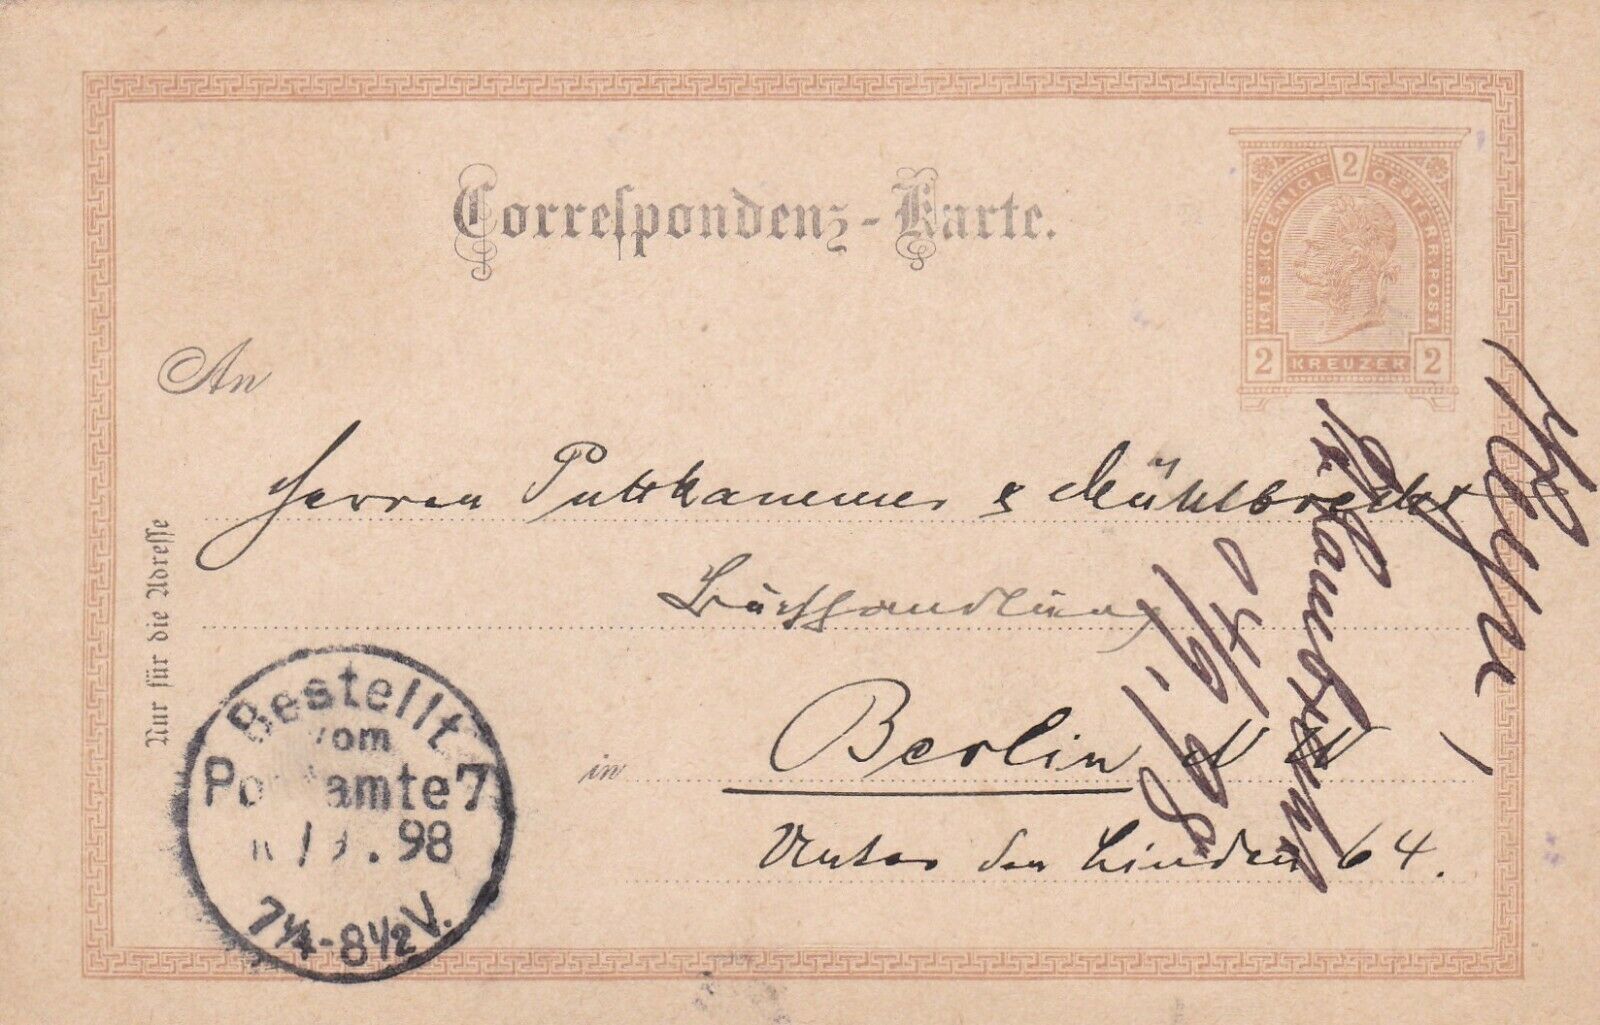 Correspondenz-Karte.
2
KAIS. KOENIGL. OESTERR. POST.
2 KREUZER 2
An
Herren Puttkammer & Mühlbrecht
Buchhandlung
in Berlin N W
Unter den Linden 64.
Nur für die Adresse
Bestellt
vom
Postamte 7
/9.98
7¼-8½V.
4/9.98